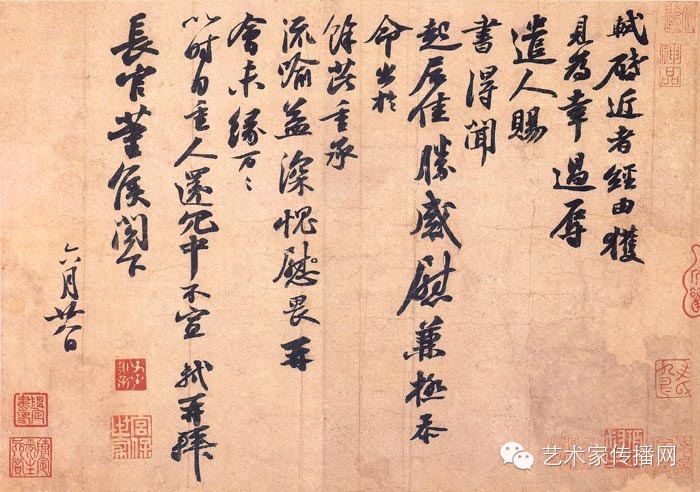 軾啓近者經由獲
見為幸過辱
遣人賜
書得聞
起居佳勝感慰兼極忝
命出於
餘芘重承
流喻益深愧慰畏再
會未緣万〻
以时自重人還冗中不宣 軾再拜
長官董侯閣下
六月廿八日
艺术家传播网